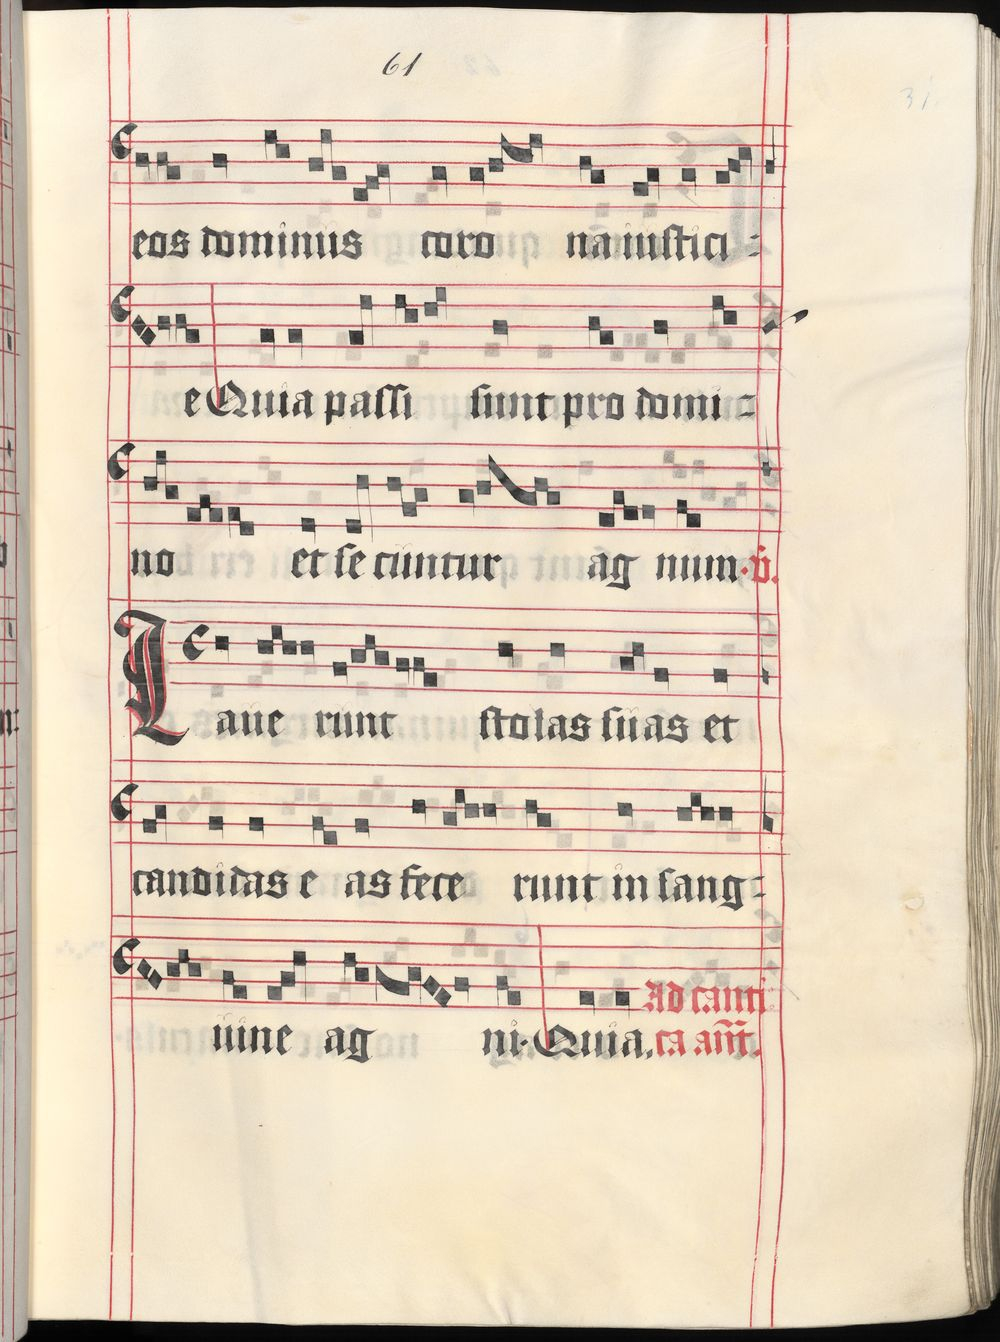 61
31.
eos dominus coro na iustici -
e Quia passi sunt pro domi -
no et se cuntur ag num. v̄.
Laue runt stolas suas et
candidas e as fece runt in sang -
uine ag ni. Quia.
Ad canti
ca an̄t.